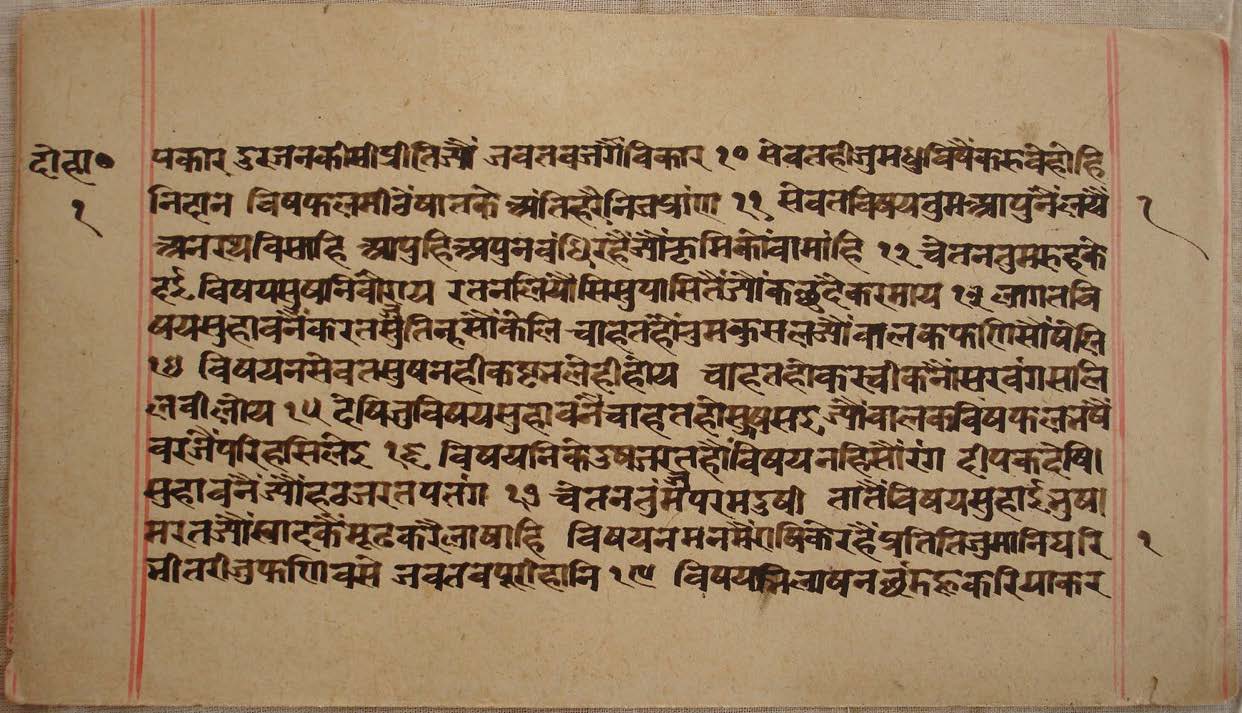 दोहा०
१
पकार दुरजनकीसीप्रीतिज्यौं जवतवजगैविकार १० सेवतहीजुमधुविषैकरुवेहोहि
निदान विषफलमीठेंषातके अंतिहरैनिजप्रांण ११ सेवतविषयतुमआपुनैंलयै
अनरथविसाहि आपुहिआपुनवंधिरहैंज्यौंकृमिकोंवामांहि १२ चेतनतुम
दई विषयसुषनिवौराय रतनलियौसिसुपासितैंज्यौंकछुदेकरमाय १३ लागतवि
षयसुहावनैंकरतसुतिनसौंकेलि चाहतहौंतुमकुसलज्यौंवालकफणिसौंषेलि
१४ विषयनसेवतसुषनहीकष्टनलेहीहोय चाहतहोकरचीकनौंसरवंगसालि
लवीलोय १५ देषितुविषयसुहावनैचाहतहौसुषसइ ज्यौंवालकविषफलनषैं
वरजैंपरिहसिलेइ १६ विषयनिकेदुषजरतहौंविषयनहिसौंरंग दीपकदेषि।
सुहावनैंज्यौंहठजरतपतंग १७ चेतनतुंमैंपरमदुषी तातैंविषयसुहाईनुषा
मरतज्यौंस्वादकैंमूढकरैलाषाहि विषयनमनमैंराषिकेरहैंप्रतितिजुमानिघरि
भीतरीजुफणिवसै जवतवपूरीहानि १९ विषयभिलाषन करियाकर
२
१